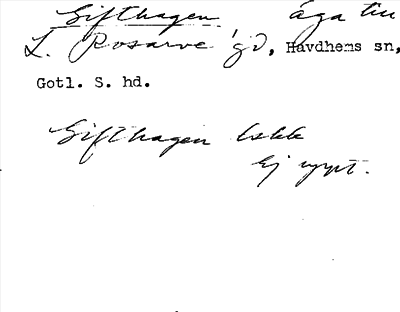 Gifthagen äga till
L. Rosarve gd, Havdhems sn,
Gotl. S. hd.
Gifthagen
Ej uppt.